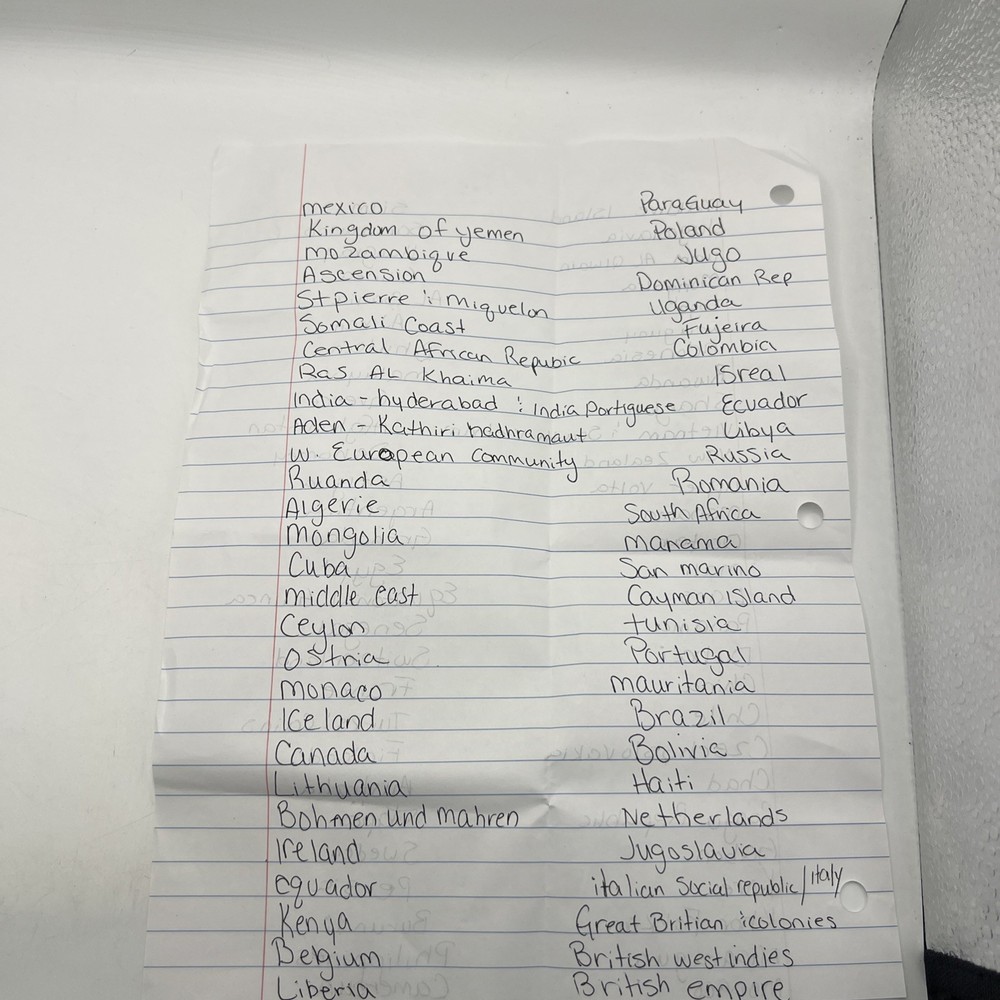 mexico
Kingdom of yemen
Mozambique
Ascension
St pierre : Miquelon
Somali Coast
Central African Repubic
Ras AL Khaima
India - hyderabad : India Portiguese
Aden - Kathiri hadhramaut
W. European Community
Ruanda
Algerie
Mongolia
Cuba
middle east
Ceylon
Ostria
Monaco
Iceland
Canada
Lithuania
Bohmen und mahren
Ireland
equador
Kenya
Belgium
Libersa
ParaGuay
Poland
Jugo
Dominican Rep
Uganda
Fujeira
Colombia
ISreal
Ecuador
Libya
Russia
Romania
South Africa
manama
San marino
Cayman ISland
tunisia
Portugal
mauritania
Brazil
Bolivia
Haiti
Netherlands
Jugoslavia
italian Social republic/italy
Great Britian : colonies
British west indies
British empire